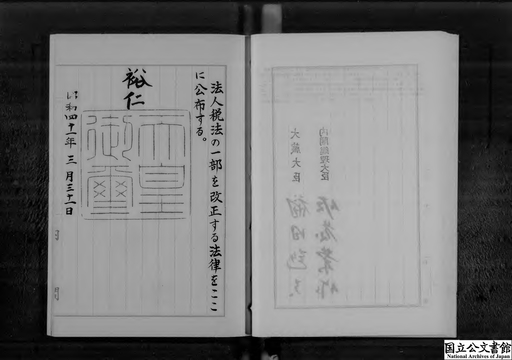 法人税法の一部を改正する法律をここ
に公布する。
裕仁
天皇
御璽
昭和四十一年三月三十一日
内閣総理大臣
佐藤榮作
大蔵大臣
福田赳夫
国立公文書館
National Archives of Japan